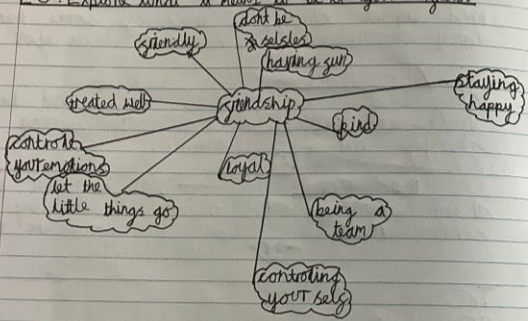 dont be
selsles
friendly
having fun
staying
happy
treated well
friendship
kind
controle
your emotions
loyal
let the
little things go
being a
team
controling
your self